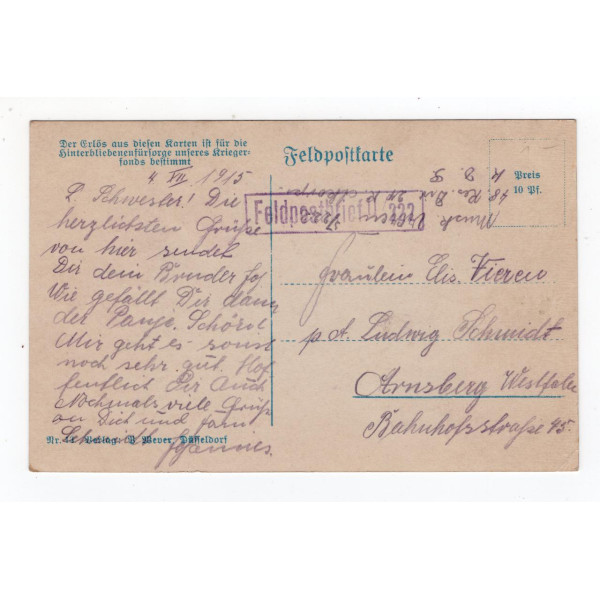 Der Erlös aus diesen Karten ist für die
Hinterbliebenenfürsorge unseres Krieger-
fonds bestimmt
4. VII 1915
L. Schwester! Die
herzlichsten Grüße
von hier sendet
Dir dein Bruder
Wie gefällt Dir denn
der Panje.
Mir geht es sonst
noch sehr gut. Hof
fentlich Dir auch
Nochmals viele Grüße
an Dich und Fam.
Schmidt
Nr. Verlag: Meyer, Düsseldorf
Feldpostkarte
Preis
10 Pf.
Feldpostbrief
Fräulein Elis.
p. d. Ludwig Schmidt
Arnsberg Westfalen
Bahnhofsstraße 45.